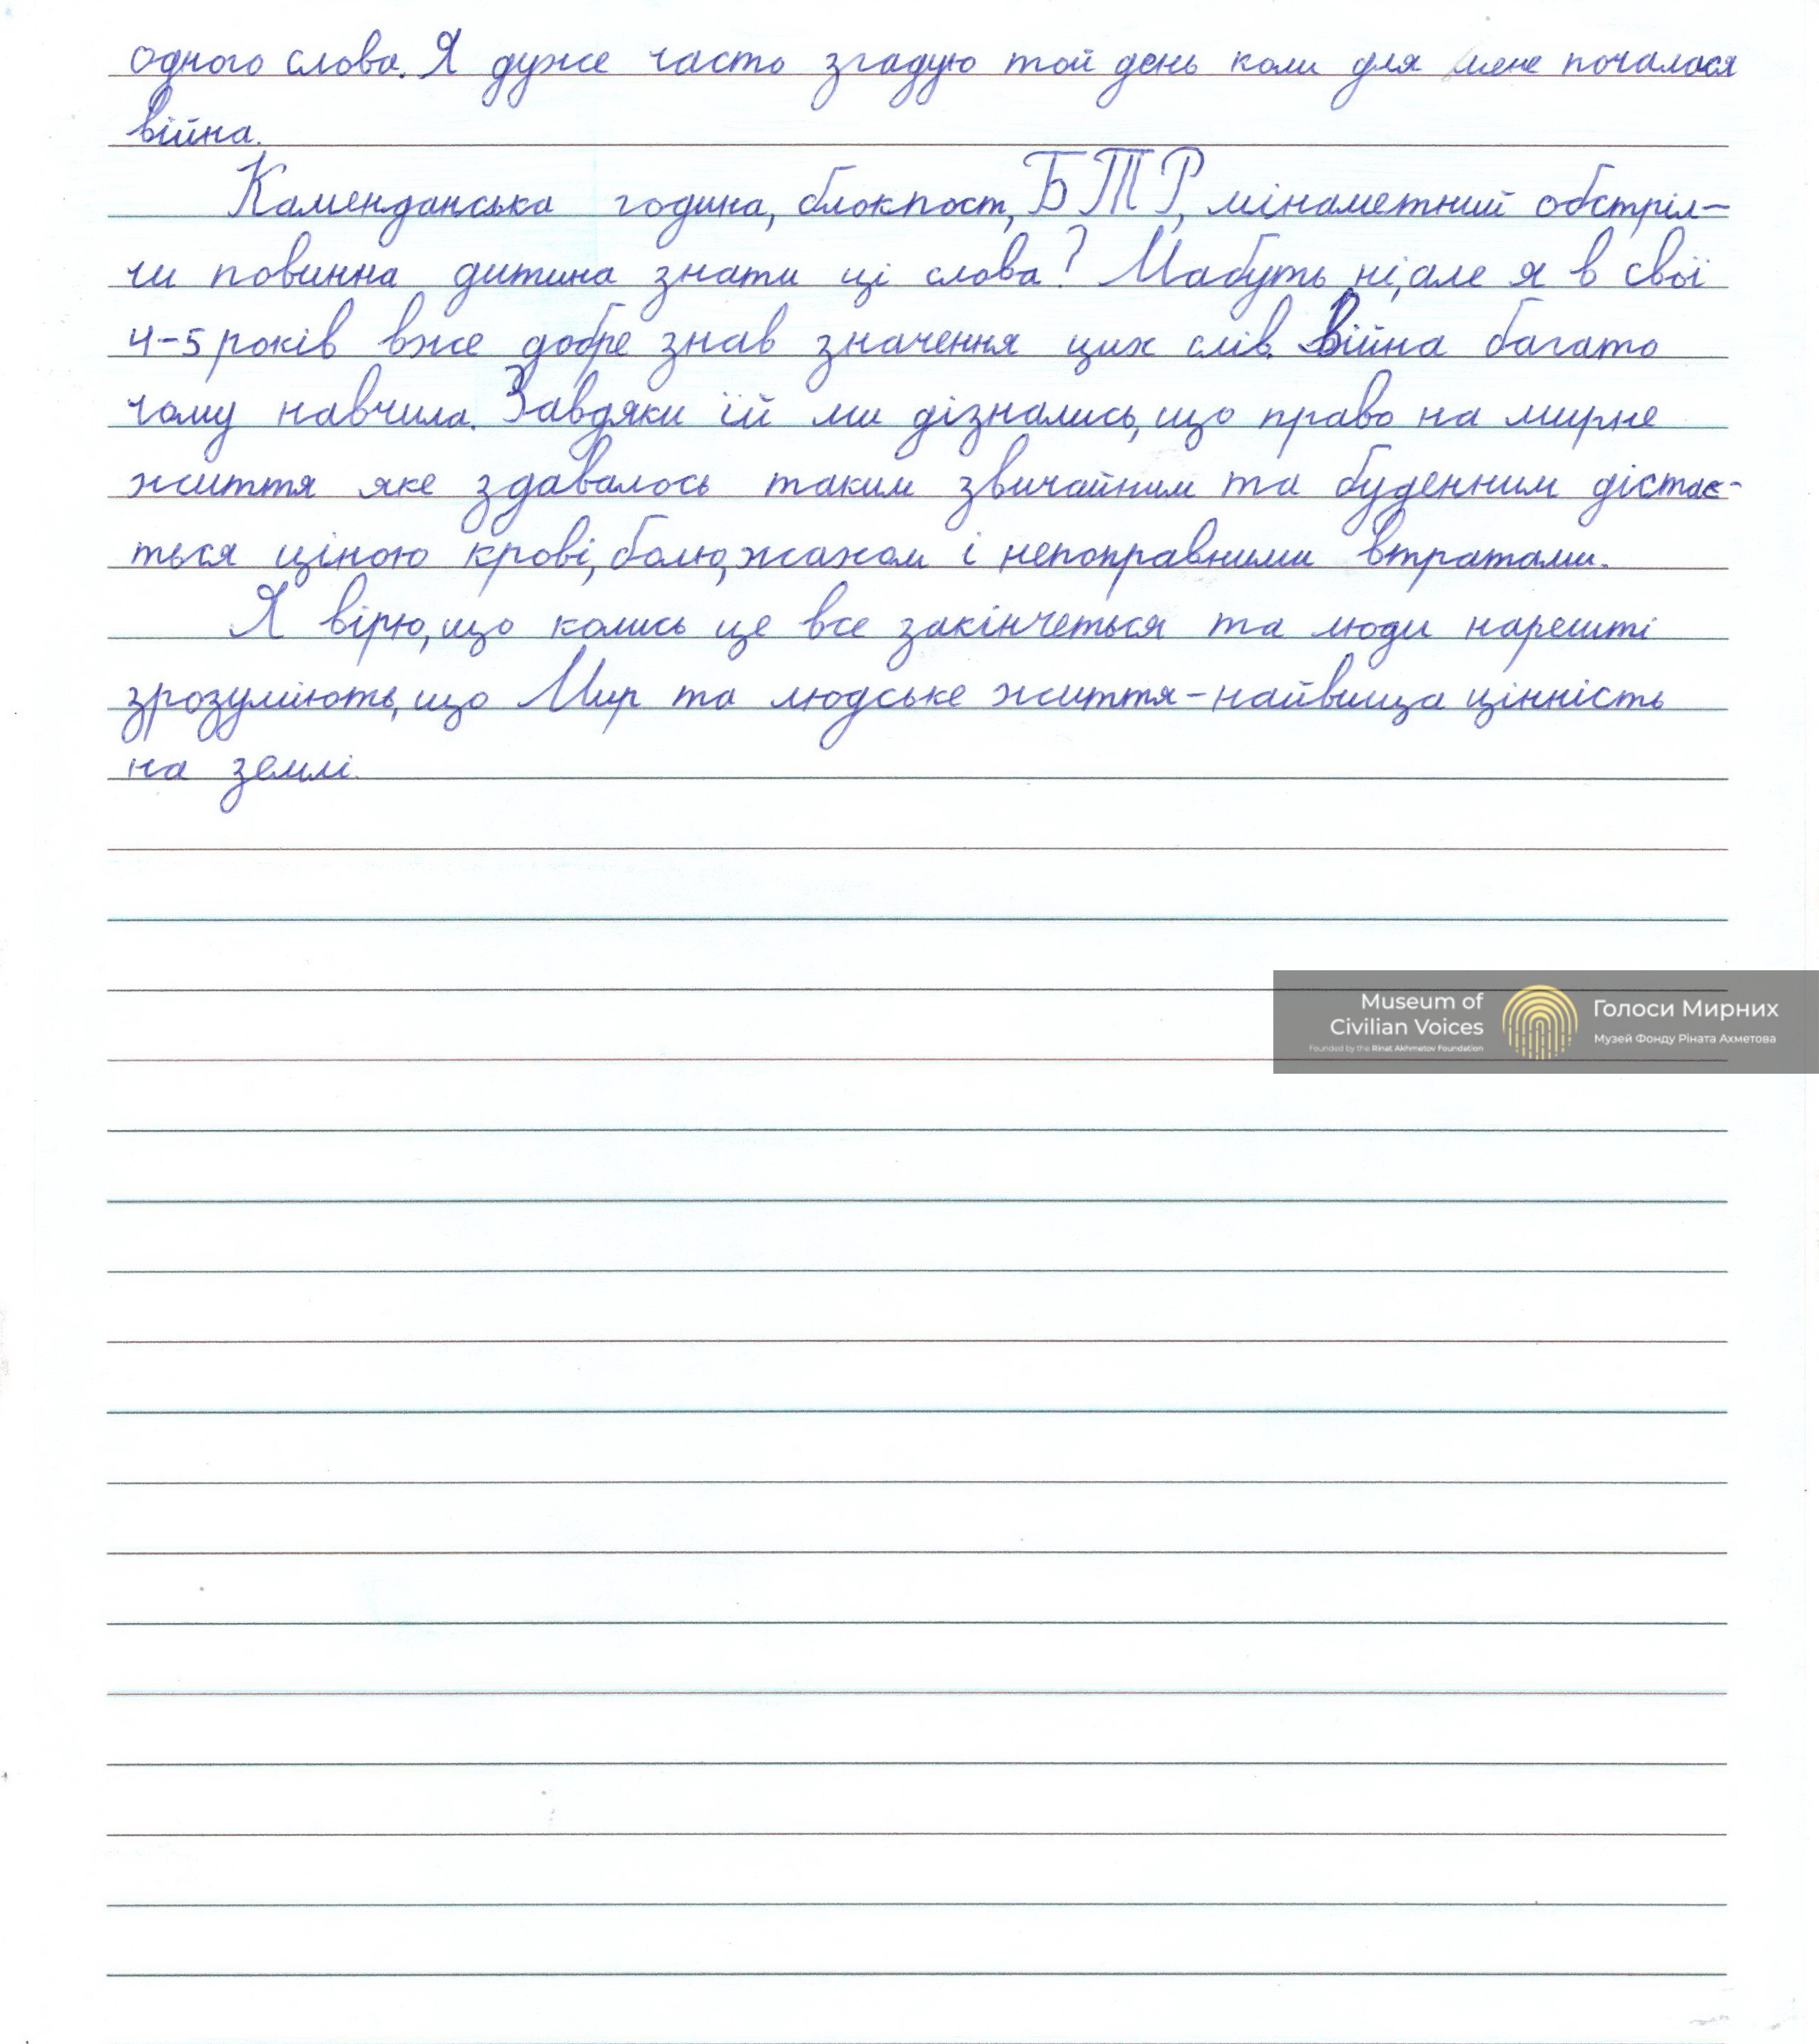 одного слова. Я дуже часто згадую той день коли для мене почалася
війна.
Каменданська година, блокпост, БТР, мінаметний обстріл-
чи повинна дитина знати ці слова? Мабуть ні, але я в свої
4-5 років вже добре знав значення цих слів. Війна багато
чому навчила. Завдяки їй ми дізнались, що право на мирне
життя яке здавалось таким звичайним та буденним дістає-
ться ціною крові, болю, жахом і непоправними втратами.
Я вірю, що колись це все закінчеться та люди нарешті
зрозуміють, що Мир та людське життя-найвища цінність
на землі.
Museum of
Civilian Voices
Founded by the Rinat Akhmetov Foundation
Голоси Мирних
Музей Фонду Ріната Ахметова